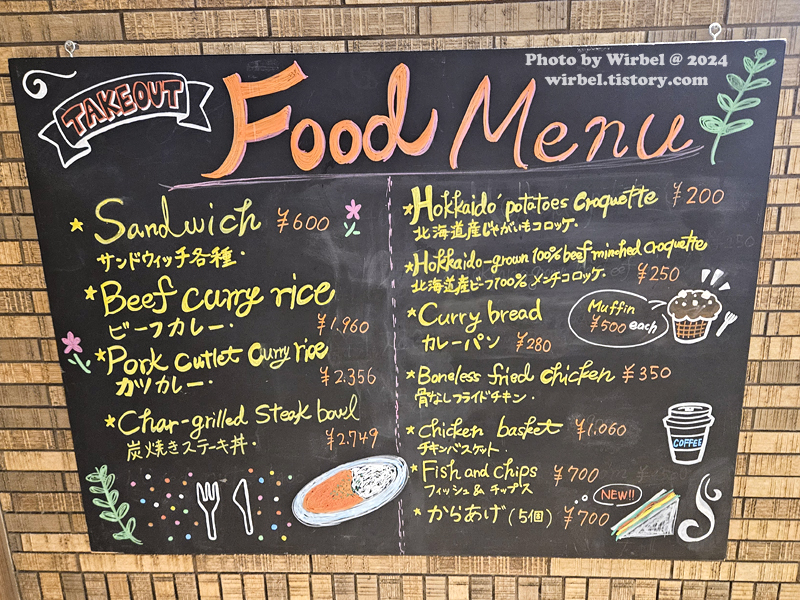 Photo by Wirbel @ 2024
wirbel.tistory.com
TAKEOUT
Food Menu
Sandwich ¥600
サンドウィッチ各種.
Beef curry rice
ビーフカレー. ¥1,960
Pork cutlet curry rice
カツカレー. ¥2,356
Char-grilled Steak bowl
炭焼きステーキ丼. ¥2,749
Hokkaido potatoes croquette ¥200
北海道産じゃがいもコロッケ.
Hokkaido-grown 100% beef minched croquette
北海道産ビーフ100% メンチコロッケ. ¥250
Curry bread
カレーパン ¥280
Muffin
¥500 each
Boneless fried chicken ¥350
骨なしフライドチキン.
chicken basket ¥1,060
チキンバスケット
COFFEE
Fish and chips ¥700
フィッシュ & チップス
NEW!!
からあげ (5個) ¥700